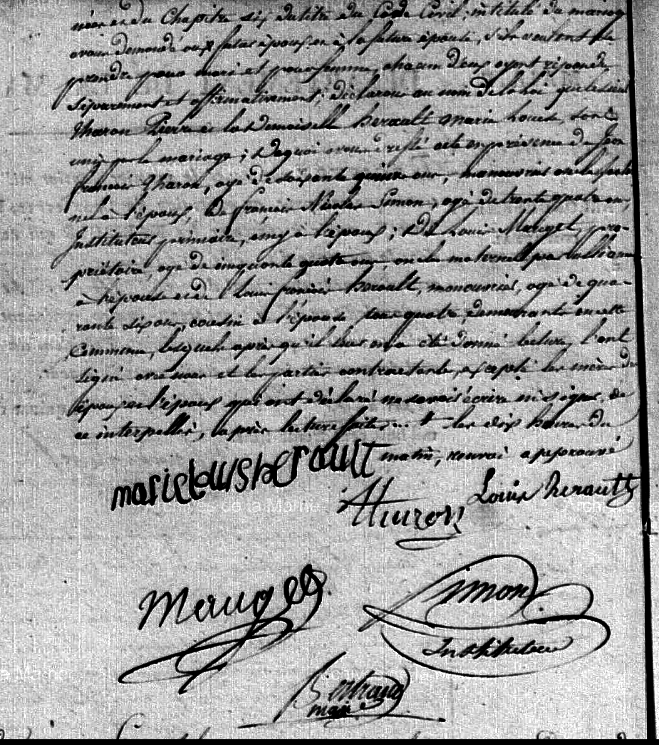 du Chapitre six du titre du Code Civil, intitulé du mariage
avoir demandé aux futur époux et à la future épouse, s'ils veulent se
prendre pour mari et pour femme, chacun d'eux ayant répondu
séparement et affirmativement; déclarons au nom de la loi que le sieur
Pierre et la Demoiselle herault marie Louise sont
unis par le mariage; de quoi avons acte en présence de Jean
francois agé de soixante quinze ans, manouvrier, oncle
à l'époux, De francois Nicolas Simon, agé de trente quatre ans,
Instituteur primaire, ami à l'époux; De Louis Mauget, pro-
priétaire, agé de cinquante quatre ans, oncle maternel par alliance
à l'épouse et de Louis herault, manouvrier, agé de qua-
rante six ans, cousin à l'épouse tous quatre demeurants en cette
Commune, lesquels après qu'il leur en a été donné lecture, l'ont
signé avec nous et les parties contractantes, excepté les mères de
l'épouse et l'époux qui ont déclaré ne savoir écrire ni signer, de
ce interpellés, après lecture faite. les dix heures du
matin, renvoi approuvé
marie Louis herault
Louis herault
Mauget
Simon
Instituteur
Bertrand